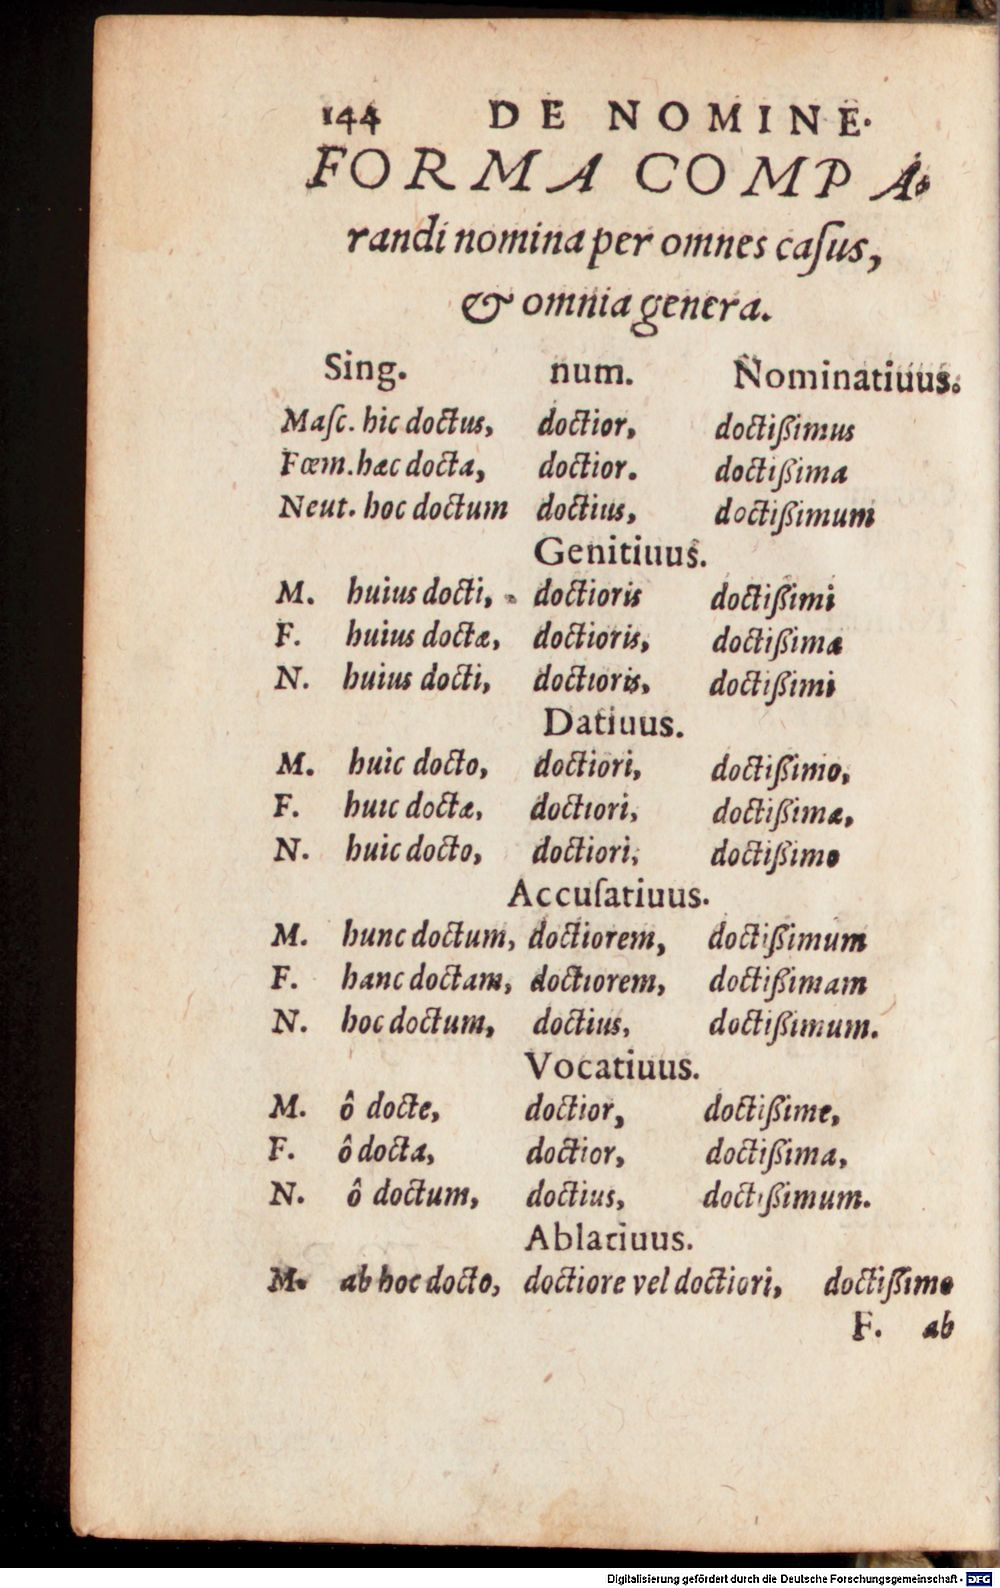 144 DE NOMINE.
FORMA COMPA-
randi nomina per omnes caſus,
& omnia genera.
Sing. num. Nominatiuus.
Maſc. hic doctus, doctior, doctißimus
Fœm. hæc docta, doctior. doctißima
Neut. hoc doctum doctius, doctißimum
Genitiuus.
M. huius docti, doctioris doctißimi
F. huius doctæ, doctioris, doctißimæ
N. huius docti, doctioris, doctißimi
Datiuus.
M. huic docto, doctiori, doctißimo,
F. huic doctæ, doctiori, doctißimæ,
N. huic docto, doctiori, doctißimo
Accuſatiuus.
M. hunc doctum, doctiorem, doctißimum
F. hanc doctam, doctiorem, doctißimam
N. hoc doctum, doctius, doctißimum.
Vocatiuus.
M. ô docte, doctior, doctißime,
F. ô docta, doctior, doctißima,
N. ô doctum, doctius, doctißimum.
Ablatiuus.
M. ab hoc docto, doctiore vel doctiori, doctißimo
F. ab
Digitalisierung gefördert durch die Deutsche Forschungsgemeinschaft - DFG